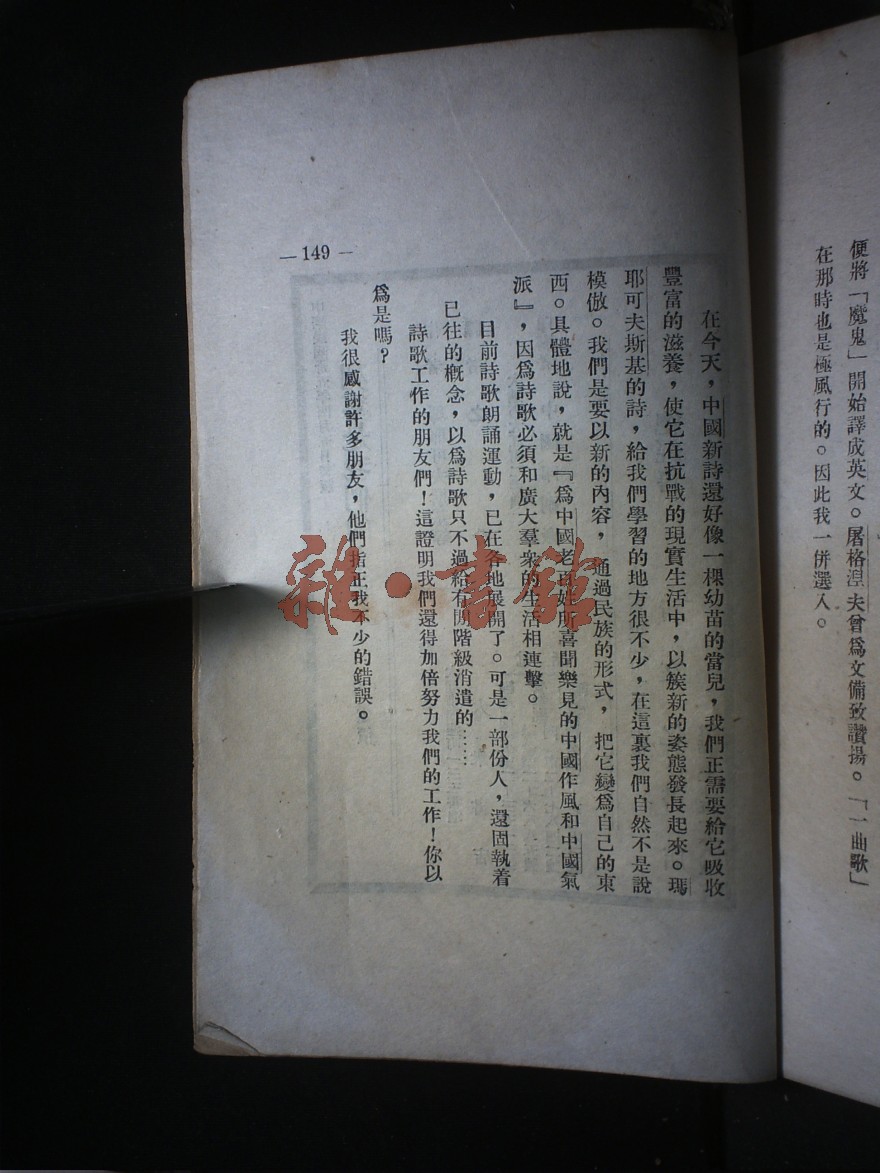 便將「魔鬼」開始譯成英文。屠格湼夫曾爲文備致讚揚。「一曲歌」
在那時也是極風行的。因此我一併選入。
在今天，中國新詩還好像一棵幼苗的當兒，我們正需要給它吸收
豐富的滋養，使它在抗戰的現實生活中，以簇新的姿態發長起來。瑪
耶可夫斯基的詩，給我們學習的地方很不少，在這裏我們自然不是說
模倣。我們是要以新的內容，通過民族的形式，把它變爲自己的東
西。具體地說，就是『爲中國老百姓所喜聞樂見的中國作風和中國氣
派』，因爲詩歌必須和廣大羣衆的生活相連擊。
目前詩歌朗誦運動，已在各地展開了。可是一部份人，還固執着
已往的概念，以爲詩歌只不過給有閒階級消遣的……
詩歌工作的朋友們！這證明我們還得加倍努力我們的工作！你以
爲是嗎？
我很感謝許多朋友，他們指正我不少的錯誤。
— 149 —
雜·書館